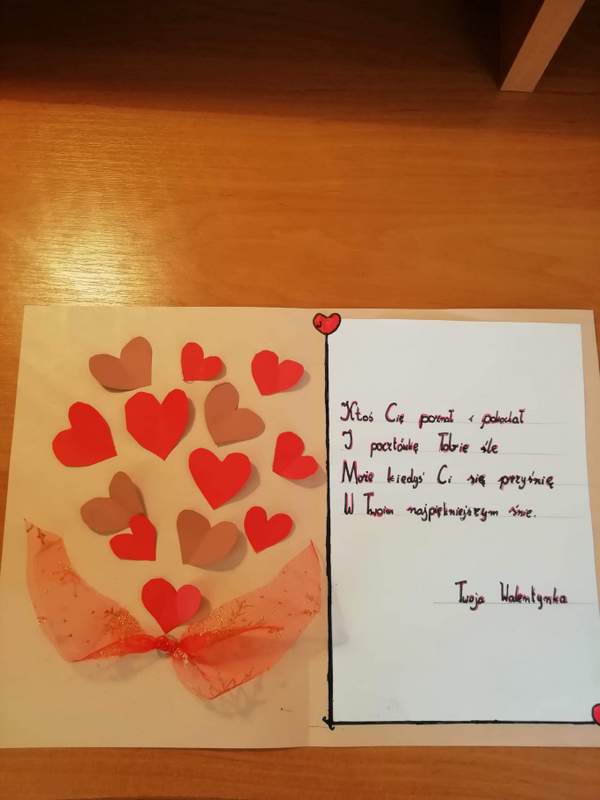 Ktoś Cię poznał i pokochał
I pocztówkę Tobie śle
Może kiedyś Ci się przyśnię
W Twoim najpiękniejszym śnie.
Twoja Walentynka